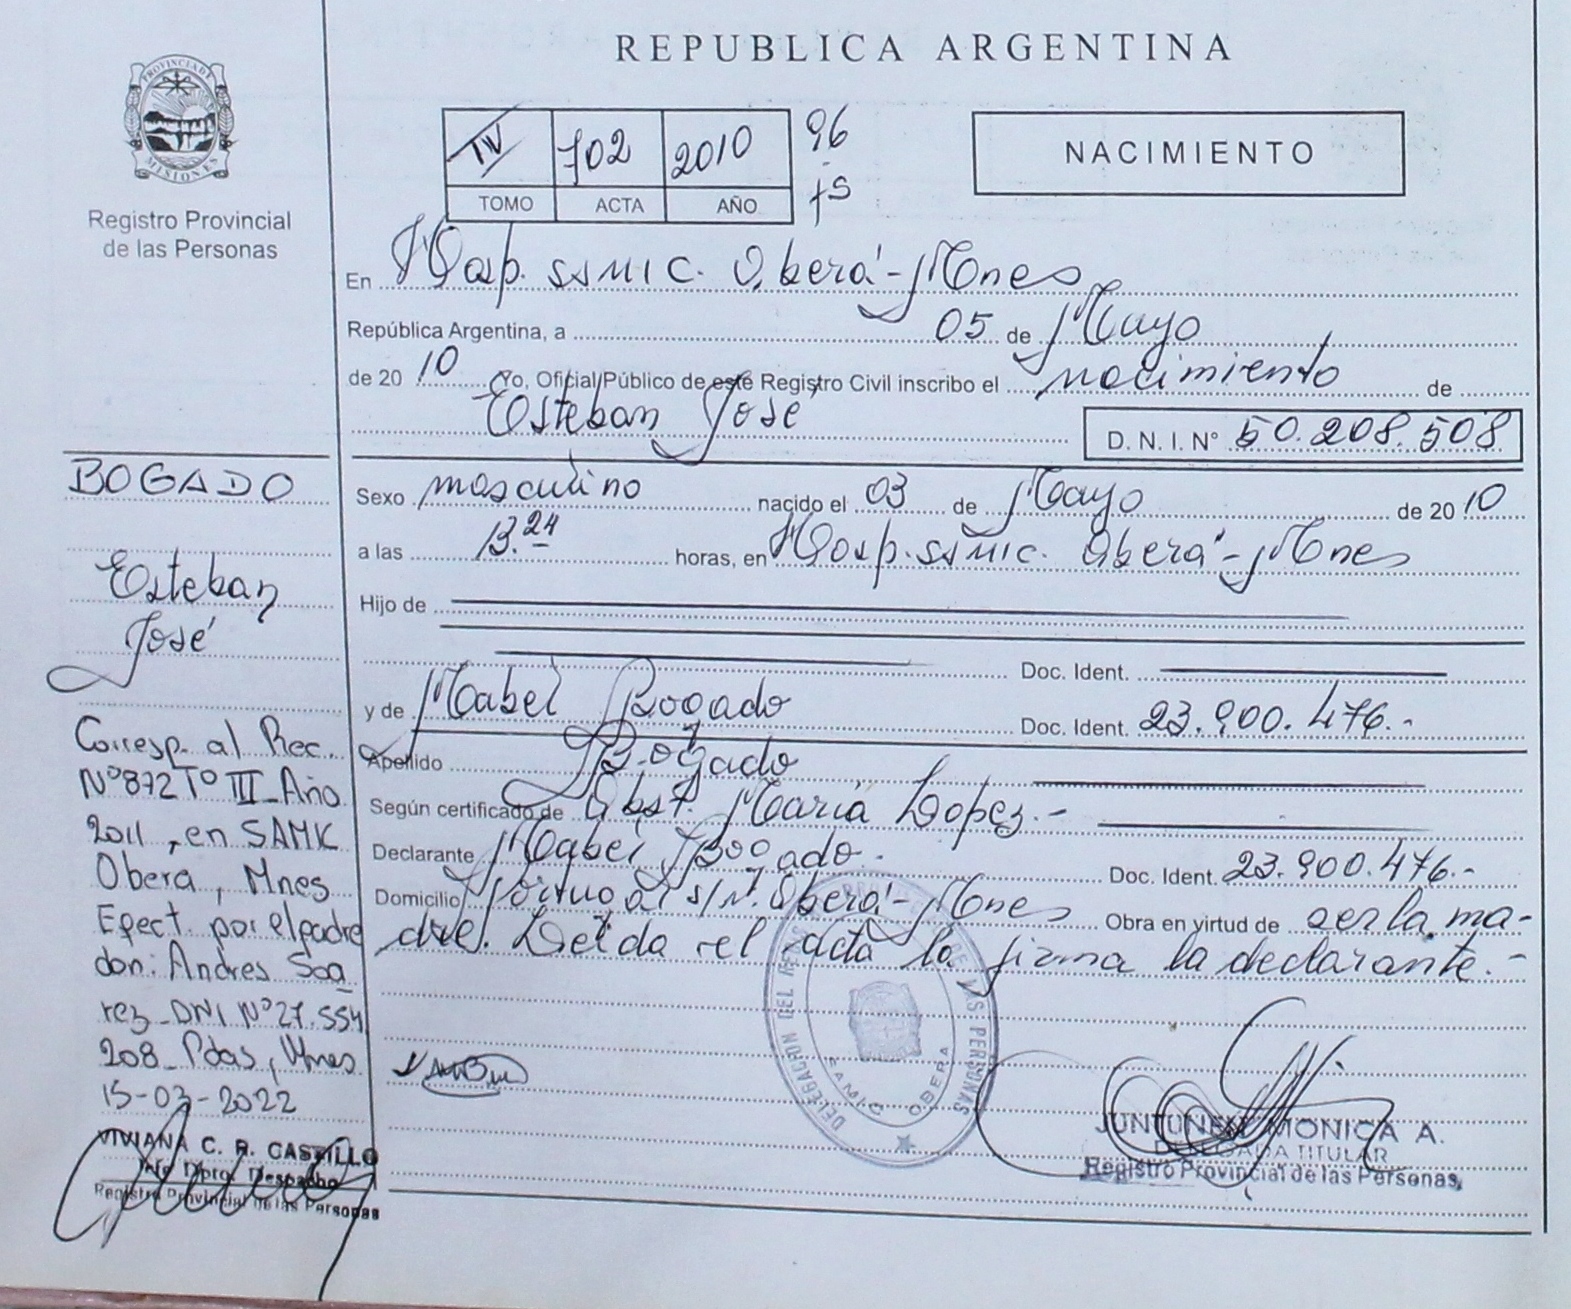 REPUBLICA ARGENTINA
PROVINCIA DE MISIONES
Registro Provincial
de las Personas
IV 702 2010 96
TOMO ACTA AÑO
NACIMIENTO
En Hosp. SSMIC. Oberá - Mnes
República Argentina, a 05 de Mayo
de 2010 Yo, Oficial Público de este Registro Civil inscribo el nacimiento de
Esteban José
D. N. I. N° 50.208.508
Sexo masculino nacido el 03 de Mayo de 2010
a las 13.24 horas, en Hosp. SSMIC. Oberá - Mnes
Hijo de
Doc. Ident.
y de Mabel Bogado Doc. Ident. 23.900.476.-
Apellido Bogado
Según certificado de Obst. María Lopez.-
Declarante Mabel Bogado. Doc. Ident. 23.900.476.-
Domicilio Portugal s/n. Oberá - Mnes Obra en virtud de ser la ma-
dre. Leída el acta la firma la declarante.-
BOGADO
Esteban
José
Corresp. al Rec.
N°872 T° III_Año
2011, en SAMIC
Obera, Mnes
Efect. por el padre
don: Andres Soa
rez_DNI N°27.554
208_Pdas, Mnes
15-03-2022
VIVIANA C. R. CASTILLO
Jefe Dpto. Despacho
Registro Provincial de las Personas
DELEGACION DEL REG. DE LAS PERSONAS
SAMIC OBERA
JUNTUNEN MONICA A.
DELEGADA TITULAR
Registro Provincial de las Personas